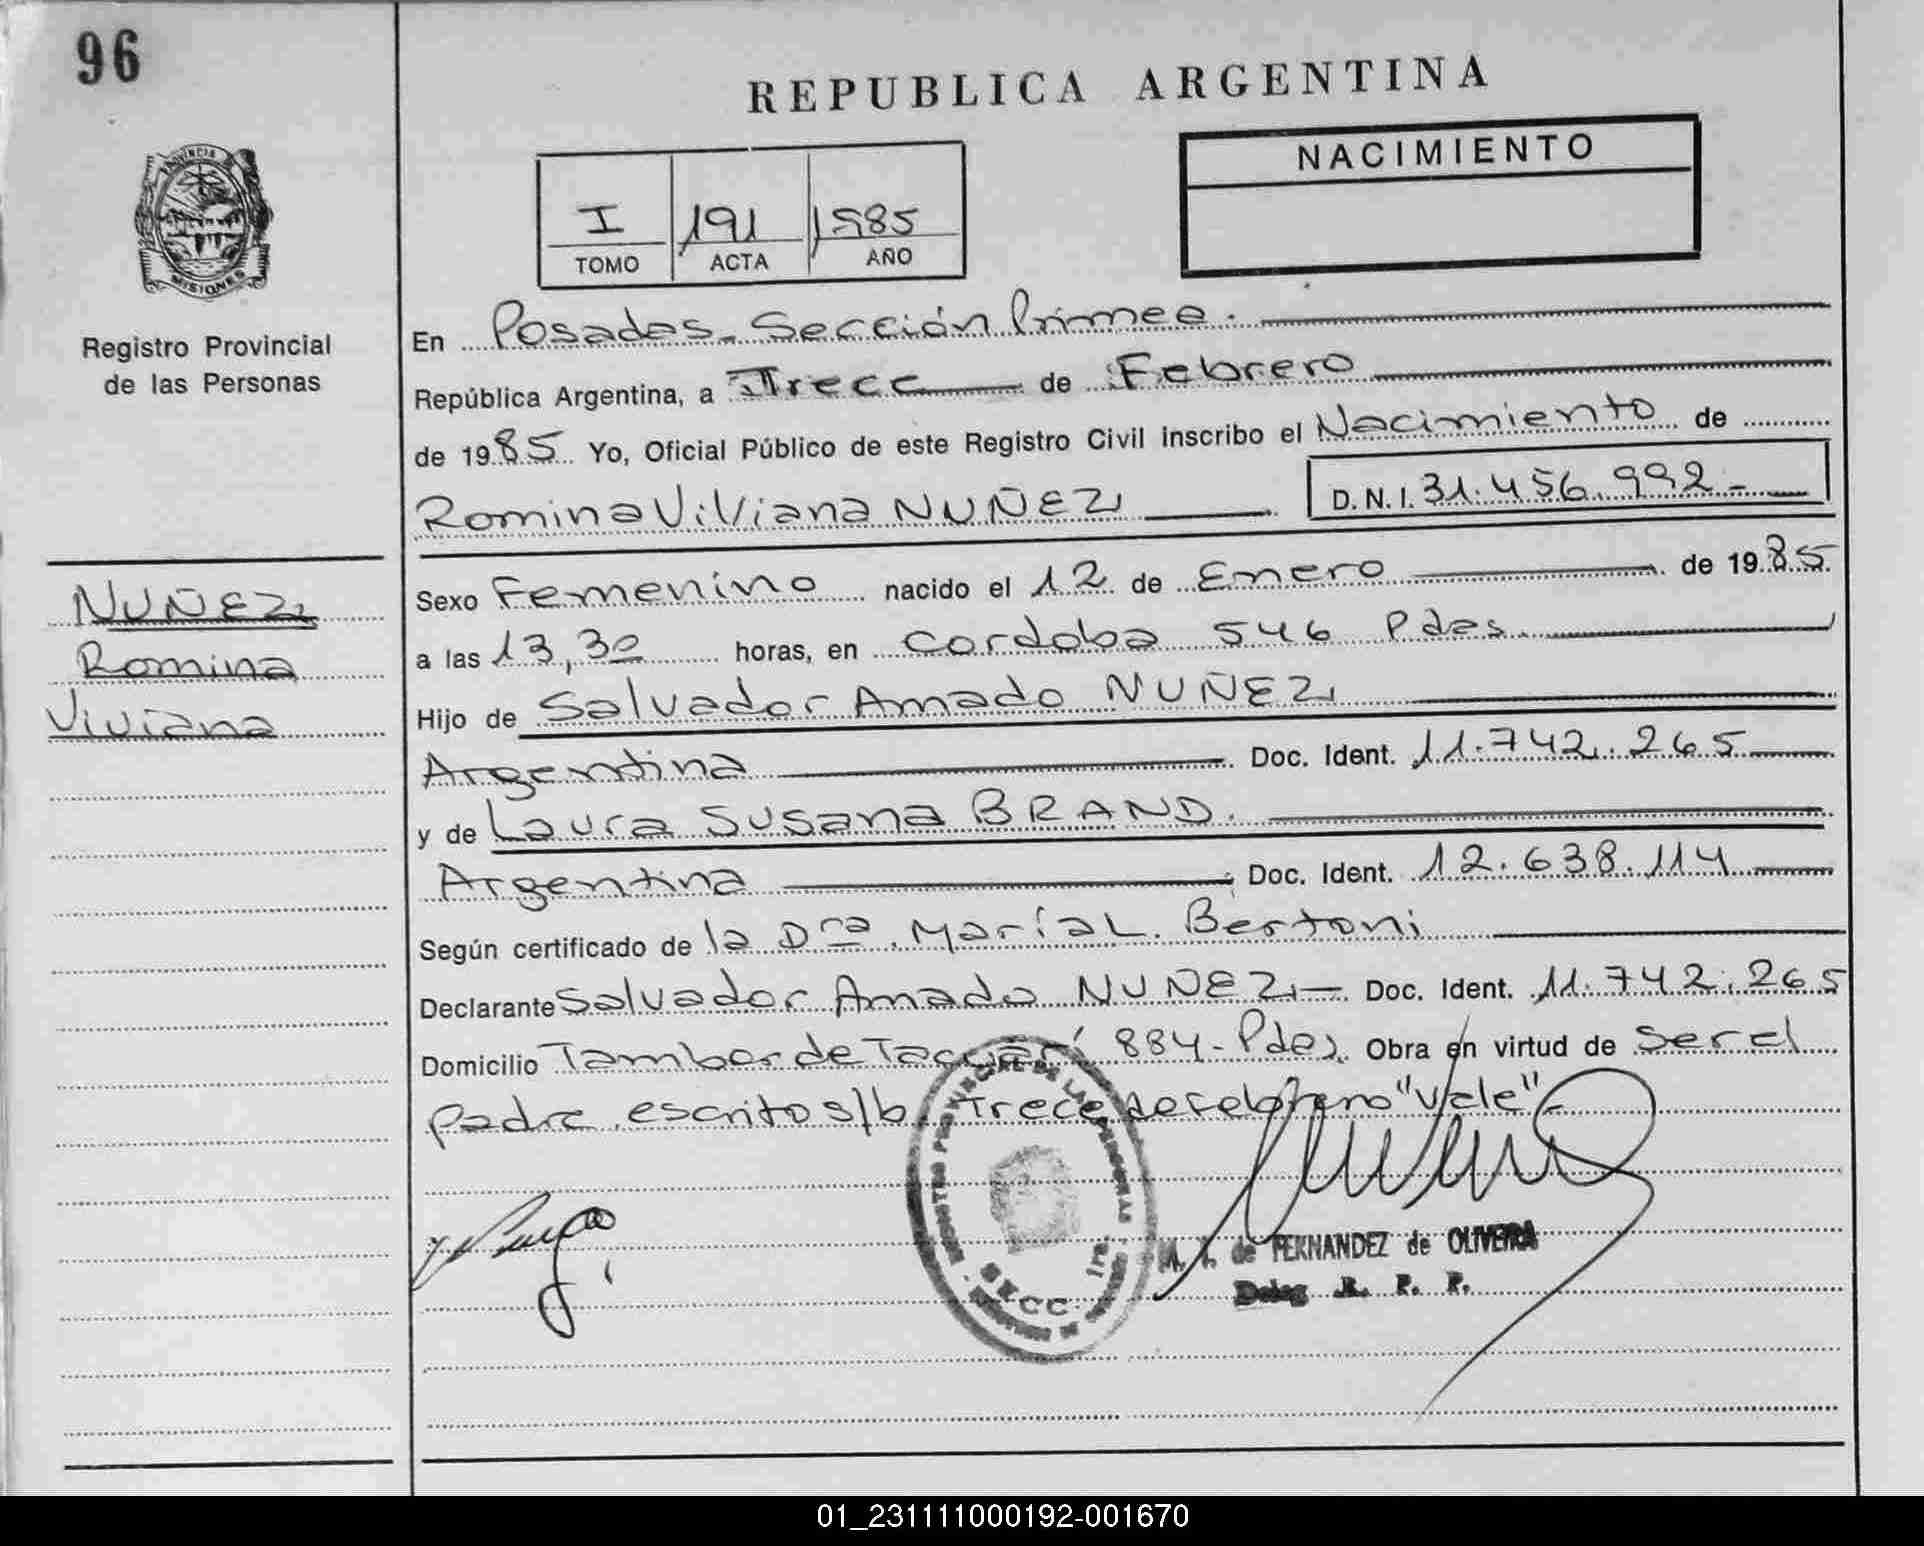 96
REPUBLICA ARGENTINA
NACIMIENTO
I 191 1985
TOMO ACTA AÑO
PROVINCIA DE
MISIONES
Registro Provincial
de las Personas
En Posadas. Sección Primea.
República Argentina, a Trece de Febrero
de 1985 Yo, Oficial Público de este Registro Civil inscribo el Nacimiento de
Romina Viviana NUÑEZ D.N.I. 31.456.992-
NUÑEZ
Romina
Viviana
Sexo Femenino nacido el 12 de Enero de 1985
a las 13,30 horas, en Cordoba 546 Pdas.
Hijo de Salvador Amado NUÑEZ
Argentina Doc. Ident. 11.742.265
y de Laura Susana BRAND.
Argentina Doc. Ident. 12.638.114
Según certificado de la Dra. María L. Bertoni
Declarante Salvador Amado NUÑEZ - Doc. Ident. 11.742.265
Domicilio Tambor de Tacuarí 884 - Pdas. Obra en virtud de ser el
padre, escrito s/b. Trece de febrero "Vale" -
REGISTRO PROVINCIAL DE LAS PERSONAS
SECC. 1ra.
M. I. de FERNANDEZ de OLIVEIRA
Deleg R. P. P.
01_231111000192-001670